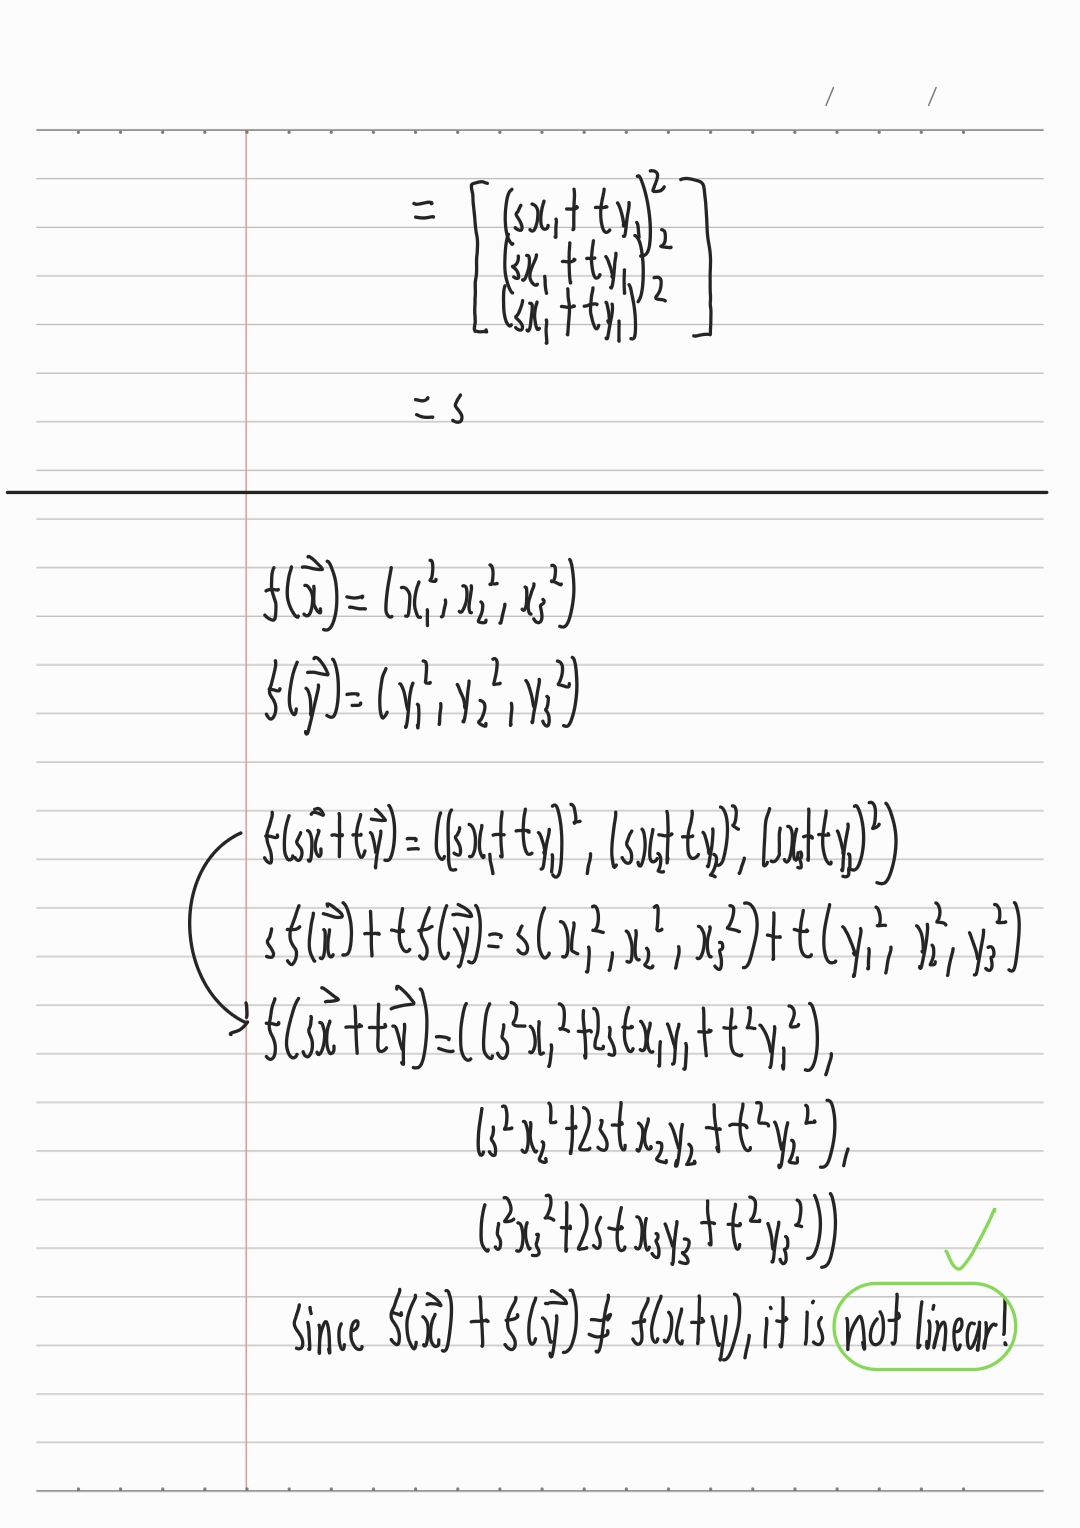 / /
= [ (sx₁ + ty₁)²
(sx₁ + ty₁)²
(sx₁ + ty₁)² ]
= s
f(x⃗) = (x₁², x₂², x₃²)
f(y⃗) = (y₁², y₂², y₃²)
f(sx⃗ + ty⃗) = ((sx₁ + ty₁)², (sx₂ + ty₂)², (sx₃ + ty₃)²)
s f(x⃗) + t f(y⃗) = s(x₁², x₂², x₃²) + t(y₁², y₂², y₃²)
f(sx⃗ + ty⃗) = ((s²x₁² + 2stx₁y₁ + t²y₁²),
(s²x₂² + 2stx₂y₂ + t²y₂²),
(s²x₃² + 2stx₃y₃ + t²y₃²))
since f(x⃗) + f(y⃗) ≠ f(x+y), it is not linear!